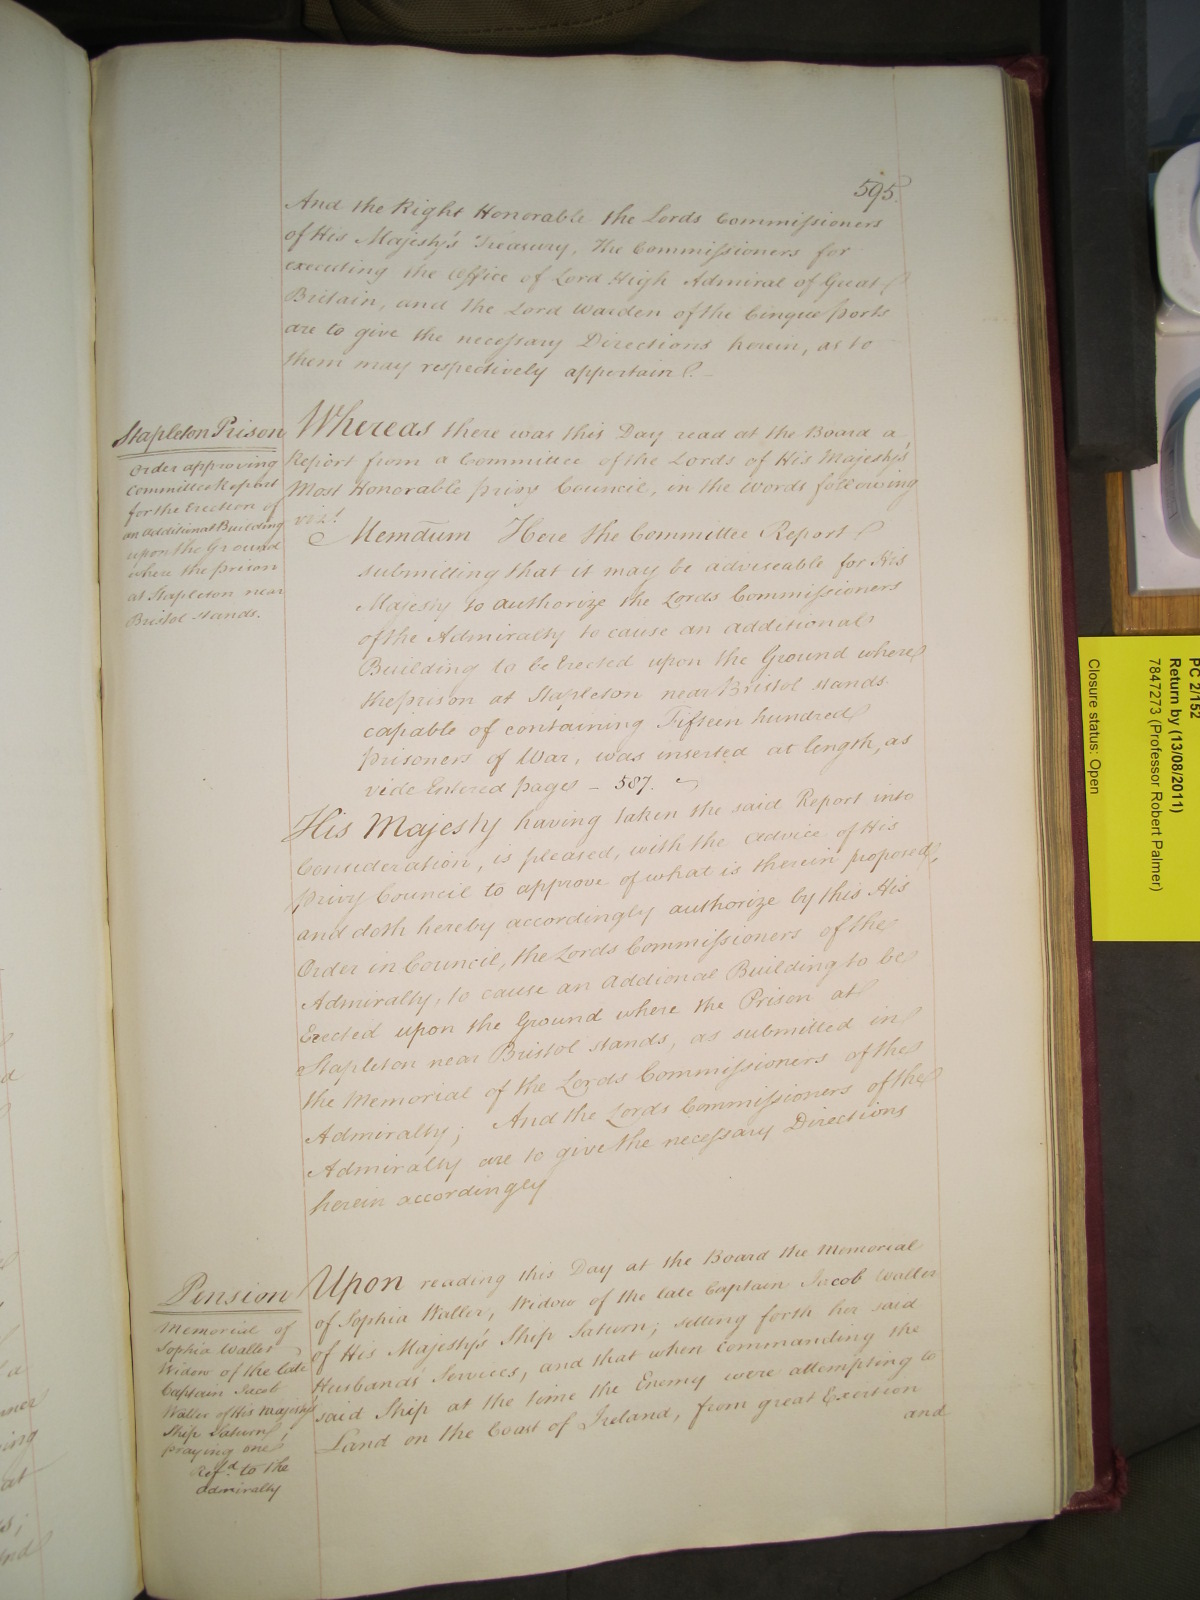 595.
And the Right Honorable the Lords Commissioners
of His Majesty's Treasury, The Commissioners for
executing the Office of Lord High Admiral of Great
Britain, and the Lord Warden of the Cinque Ports
are to give the necessary Directions herein, as to
them may respectively appertain.
Stapleton Prison
Order approving
Committee Report
for the Erection of
an additional Building
upon the Ground
where the prison
at Stapleton near
Bristol stands.
Whereas there was this Day read at the Board a
Report from a Committee of the Lords of His Majesty's
Most Honorable Privy Council, in the words following
vizt.
Memdum Here the Committee Report
submitting that it may be adviseable for His
Majesty to authorize the Lords Commissioners
of the Admiralty to cause an additional
Building to be Erected upon the Ground where
the prison at Stapleton near Bristol stands
capable of containing Fifteen hundred
prisoners of War, was inserted at length, as
vide Entered pages - 587.
His Majesty having taken the said Report into
Consideration, is pleased, with the advice of His
Privy Council to approve of what is therein proposed,
and doth hereby accordingly authorize by this His
Order in Council, the Lords Commissioners of the
Admiralty, to cause an Addional Building to be
Erected upon the Ground where the Prison at
Stapleton near Bristol stands, as submitted in
the Memorial of the Lords Commissioners of the
Admiralty; And the Lords Commissioners of the
Admiralty are to give the necessary Directions
herein accordingly
Pension
Memorial of
Sophia Waller
Widow of the late
Captain Jacob
Waller of His Majesty's
Ship Saturn,
praying one
Refd. to the
admiralty
Upon reading this Day at the Board the Memorial
of Sophia Waller, Widow of the late Captain Jacob Waller
of His Majesty's Ship Saturn; setting forth her said
Husbands Services, and that when commanding the
said Ship at the time the Enemy were attempting to
Land on the Coast of Ireland, from great Exertion
and
PC 2/152
Return by (13/08/2011)
7847273 (Professor Robert Palmer)
Closure status: Open